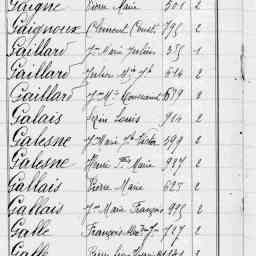 Gaigne Pierre Marie 501 2
Gaignoux Clément Const 795 2
Gaillard Jn Marie Julien 355 1
Gaillard Julien 614 2
Gaillard Jn Mie 659 2
Galais Louis 914 2
Galesne Jn Marie Victor 599 2
Galesne Henri Marie 997 2
Gallais Pierre Marie 625 2
Gallais Jn Marie François 975 2
Galle François 727 2
Galle Pierre Louis